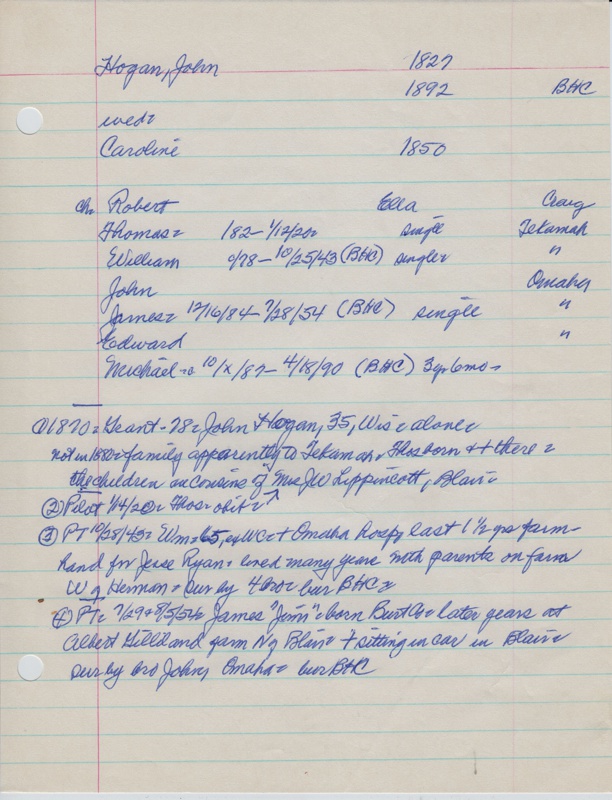 Hogan, John 1827
1892 BHC
wed=
Caroline 1850
ch= Robert Ella Craig
Thomas= 182- 1/12/20= single Tekamah
William 0/78- 10/25/43 (BHC) single= "
John Omaha
James= 12/16/84- 7/28/54 (BHC) single "
Edward "
Michael= 10/x/87- 4/18/90 (BHC) 3 yr 6mo=
① 1870= Grant- 28= John Hogan, 35, Wis= alone=
not in 1880= family apparently to Tekamah= Thos born there=
the children cousins of Mrs JW Lippincott, Blair=
② Pilot 1/14/20= Thos= obit=
③ PT 10/28/43= Wm= 65, WC= Omaha hosp, last 1 1/2 yrs farm-
hand for Jesse Ryan= lived many years with parents on farm
W of Herman= sur by 4 bro= bur BHC=
④ PT= 7/29+8/5/54= James "Jim"= born Burt Co= later years at
Albert and farm N of Blair= sitting in car in Blair=
sur by bro John, Omaha= bur BHC